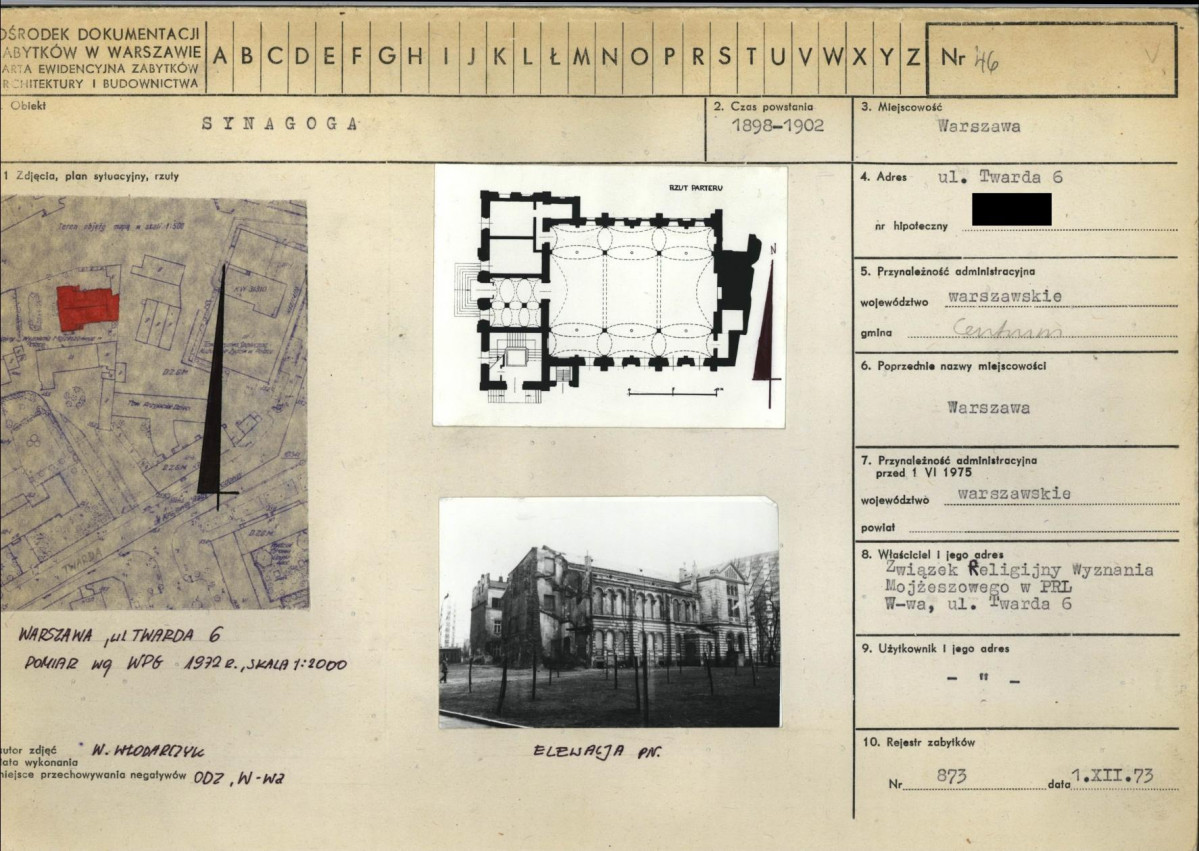 OŚRODEK DOKUMENTACJI
ABYTKÓW W WARSZAWIE
ARTA EWIDENCYJNA ZABYTKÓW
RCHITEKTURY I BUDOWNICTWA
A B C D E F G H I J K L Ł M N O P R S T U V W X Y Z
Nr 46
Obiekt
SYNAGOGA
2. Czas powstania
1898-1902
3. Miejscowość
Warszawa
1 Zdjęcia, plan sytuacyjny, rzuty
RZUT PARTERU
N
TWARDA
WARSZAWA, ul TWARDA 6
POMIAR wg WPG 1972 R., SKALA 1:2000
autor zdjęć W. WŁODARCZYK
data wykonania
miejsce przechowywania negatywów ODZ, W-wa
ELEWACJA PN.
4. Adres ul. Twarda 6
nr hipoteczny
5. Przynależność administracyjna
województwo warszawskie
gmina Centrum
6. Poprzednie nazwy miejscowości
Warszawa
7. Przynależność administracyjna
przed 1 VI 1975
województwo warszawskie
powiat
8. Właściciel i jego adres
Związek Religijny Wyznania
Mojżeszowego w PRL
W-wa, ul. Twarda 6
9. Użytkownik i jego adres
- " -
10. Rejestr zabytków
Nr 873 data 1.XII.73